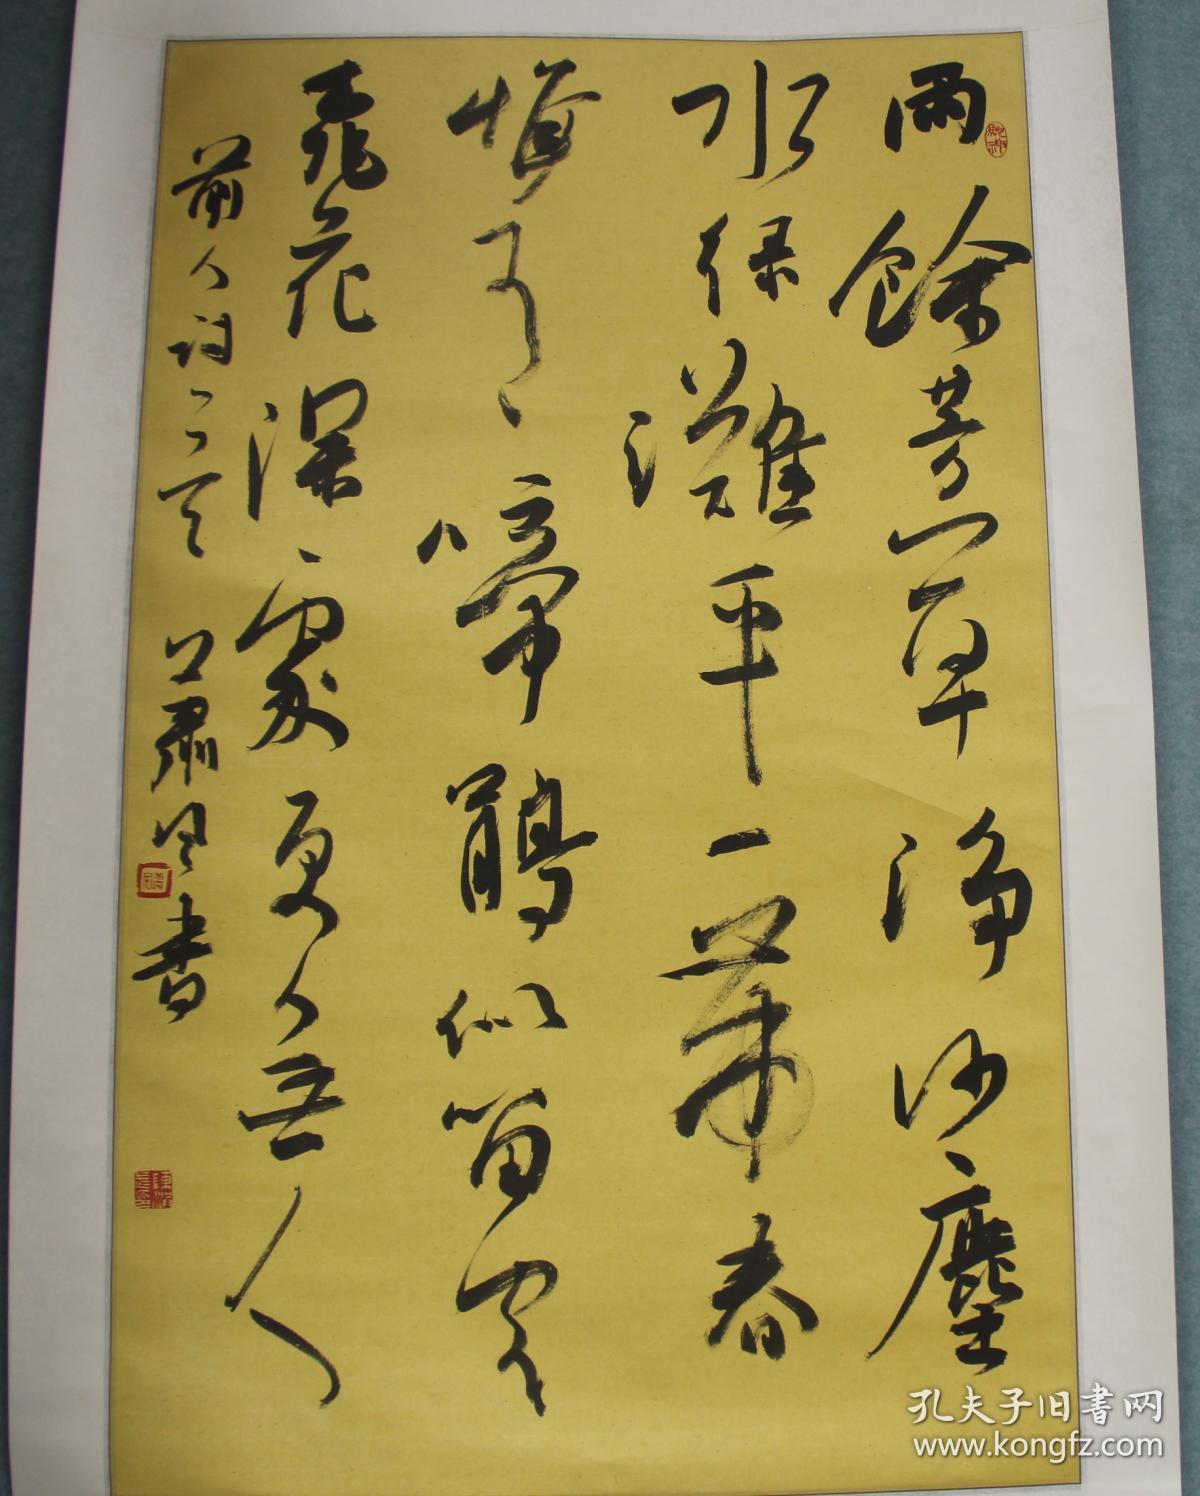 雨餘芳草淨沙塵
水绿灘平一帶春
惟有啼鵑似留客
桃花深處更無人
前人詩一首 蕭 書
孔夫子旧書网
www.kongfz.com